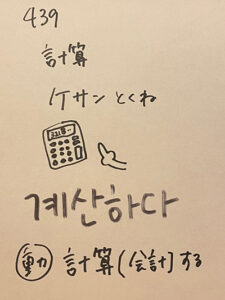 439
計算
ケサン とくね
계산하다
動 計算(会計)する